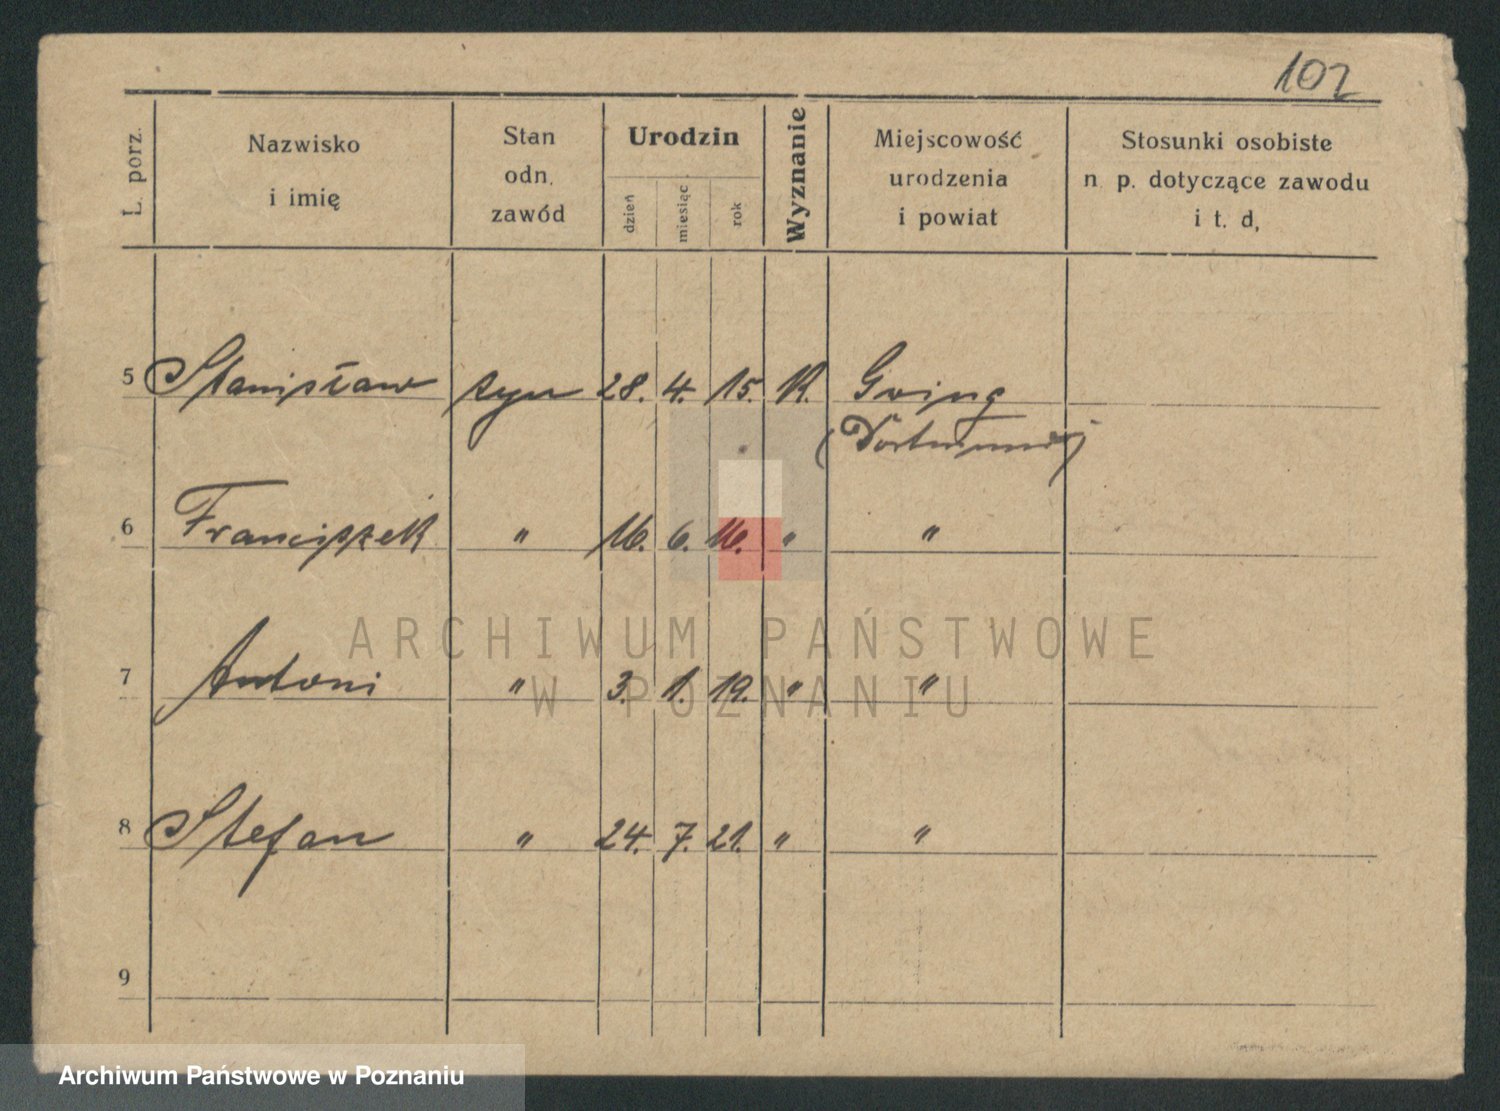 102
L. porz.
Nazwisko
i imię
Stan
odn.
zawód
Urodzin
dzień
miesiąc
rok
Wyznanie
Miejscowość
urodzenia
i powiat
Stosunki osobiste
n p. dotyczące zawodu
i t. d,
5 Stanisław syn 28. 4. 15. K. Eving
(Dortmund)
6 Franciszek " 16. 6. 16. " "
7 Antoni " 3. 1. 19. " "
8 Stefan " 24. 7. 21. " "
9
ARCHIWUM PAŃSTWOWE
W POZNANIU
Archiwum Państwowe w Poznaniu